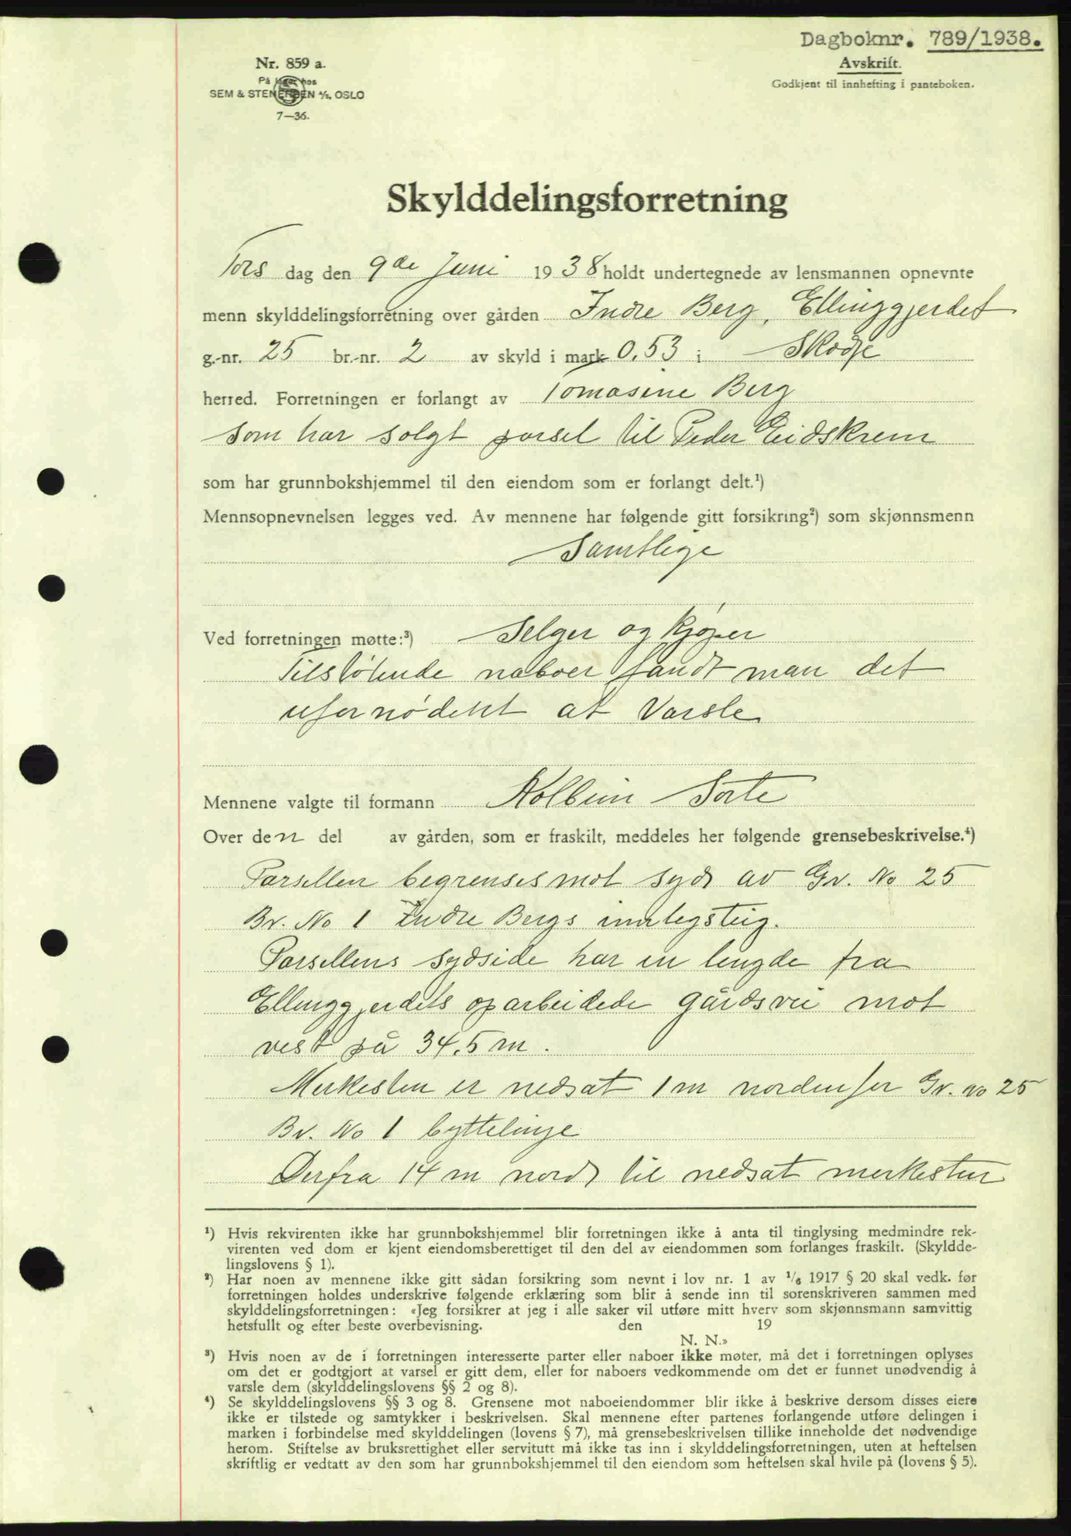 Dagboknr. 789/1938.
Nr. 859 a.
Avskrift.
På lager hos
Godkjent til innhefting i panteboken.
SEM & STENERSEN A/S, OSLO
7—36.
Skylddelingsforretning
Tors dag den 9de Juni 1938 holdt undertegnede av lensmannen opnevnte
menn skylddelingsforretning over gården Indre Berg, Ellinggjerdet
g.-nr. 25 br.-nr. 2 av skyld i mark 0,53 i Skodje
herred. Forretningen er forlangt av Tomasine Berg
som har solgt parsel til Peder Eidskrem
som har grunnbokshjemmel til den eiendom som er forlangt delt.¹)
Mennsopnevnelsen legges ved. Av mennene har følgende gitt forsikring²) som skjønnsmenn
Samtlige
Ved forretningen møtte:³) Selger og kjøper
Tilstøtende naboer fandt man det
ufornødent at Varsle
Mennene valgte til formann Kolbein Sorte
Over den del av gården, som er fraskilt, meddeles her følgende grensebeskrivelse.⁴)
Parsellen begrenses mot syd av Gr. No 25
Br. No 1 Indre Bergs innlegsteig.
Parsellens sydside har en lengde fra
Ellinggjerdets oparbeidede gårdsvei mot
vest på 34,5 m.
Merkesten er nedsat 1 m nordenfor Gr. no 25
Br. No 1 byttelinje
Derfra 14 m nord til nedsat merkesten
¹) Hvis rekvirenten ikke har grunnbokshjemmel blir forretningen ikke å anta til tinglysing medmindre rek-
virenten ved dom er kjent eiendomsberettiget til den del av eiendommen som forlanges fraskilt. (Skyldde-
lingslovens § 1).
²) Har noen av mennene ikke gitt sådan forsikring som nevnt i lov nr. 1 av 1/6 1917 § 20 skal vedk. før
forretningen holdes underskrive følgende erklæring som blir å sende inn til sorenskriveren sammen med
skylddelingsforretningen: «Jeg forsikrer at jeg i alle saker vil utføre mitt hverv som skjønnsmann samvittig
hetsfullt og efter beste overbevisning. den 19
N. N.»
³) Hvis noen av de i forretningen interesserte parter eller naboer ikke møter, må det i forretningen oplyses
om det er godtgjort at varsel er gitt dem, eller for naboers vedkommende om det er funnet unødvendig å
varsle dem (skylddelingslovens §§ 2 og 8).
⁴) Se skylddelingslovens §§ 3 og 8. Grensene mot naboeiendommer blir ikke å beskrive dersom disses eiere
ikke er tilstede og samtykker i beskrivelsen. Skal mennene efter partenes forlangende utføre delingen i
marken i forbindelse med skylddelingen (lovens § 7), må grensebeskrivelsen tillike inneholde det nødvendige
herom. Stiftelse av bruksrettighet eller servitutt må ikke tas inn i skylddelingsforretningen, uten at heftelsen
skriftlig er vedtatt av den som har grunnbokshjemmel til den eiendom som heftelsen skal hvile på (lovens § 5).